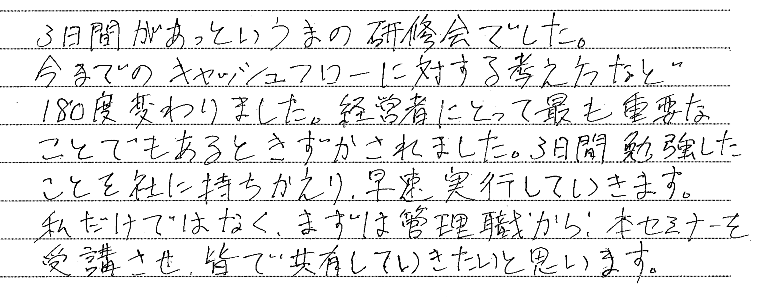 3日間があっというまの研修会でした。
今までのキャッシュフローに対する考え方など
180度変わりました。経営者にとって最も重要な
ことでもあるときずかされました。3日間勉強した
ことを社に持ちかえり、早速実行していきます。
私だけではなく、まずは管理職から、本セミナーを
受講させ、皆で共有していきたいと思います。